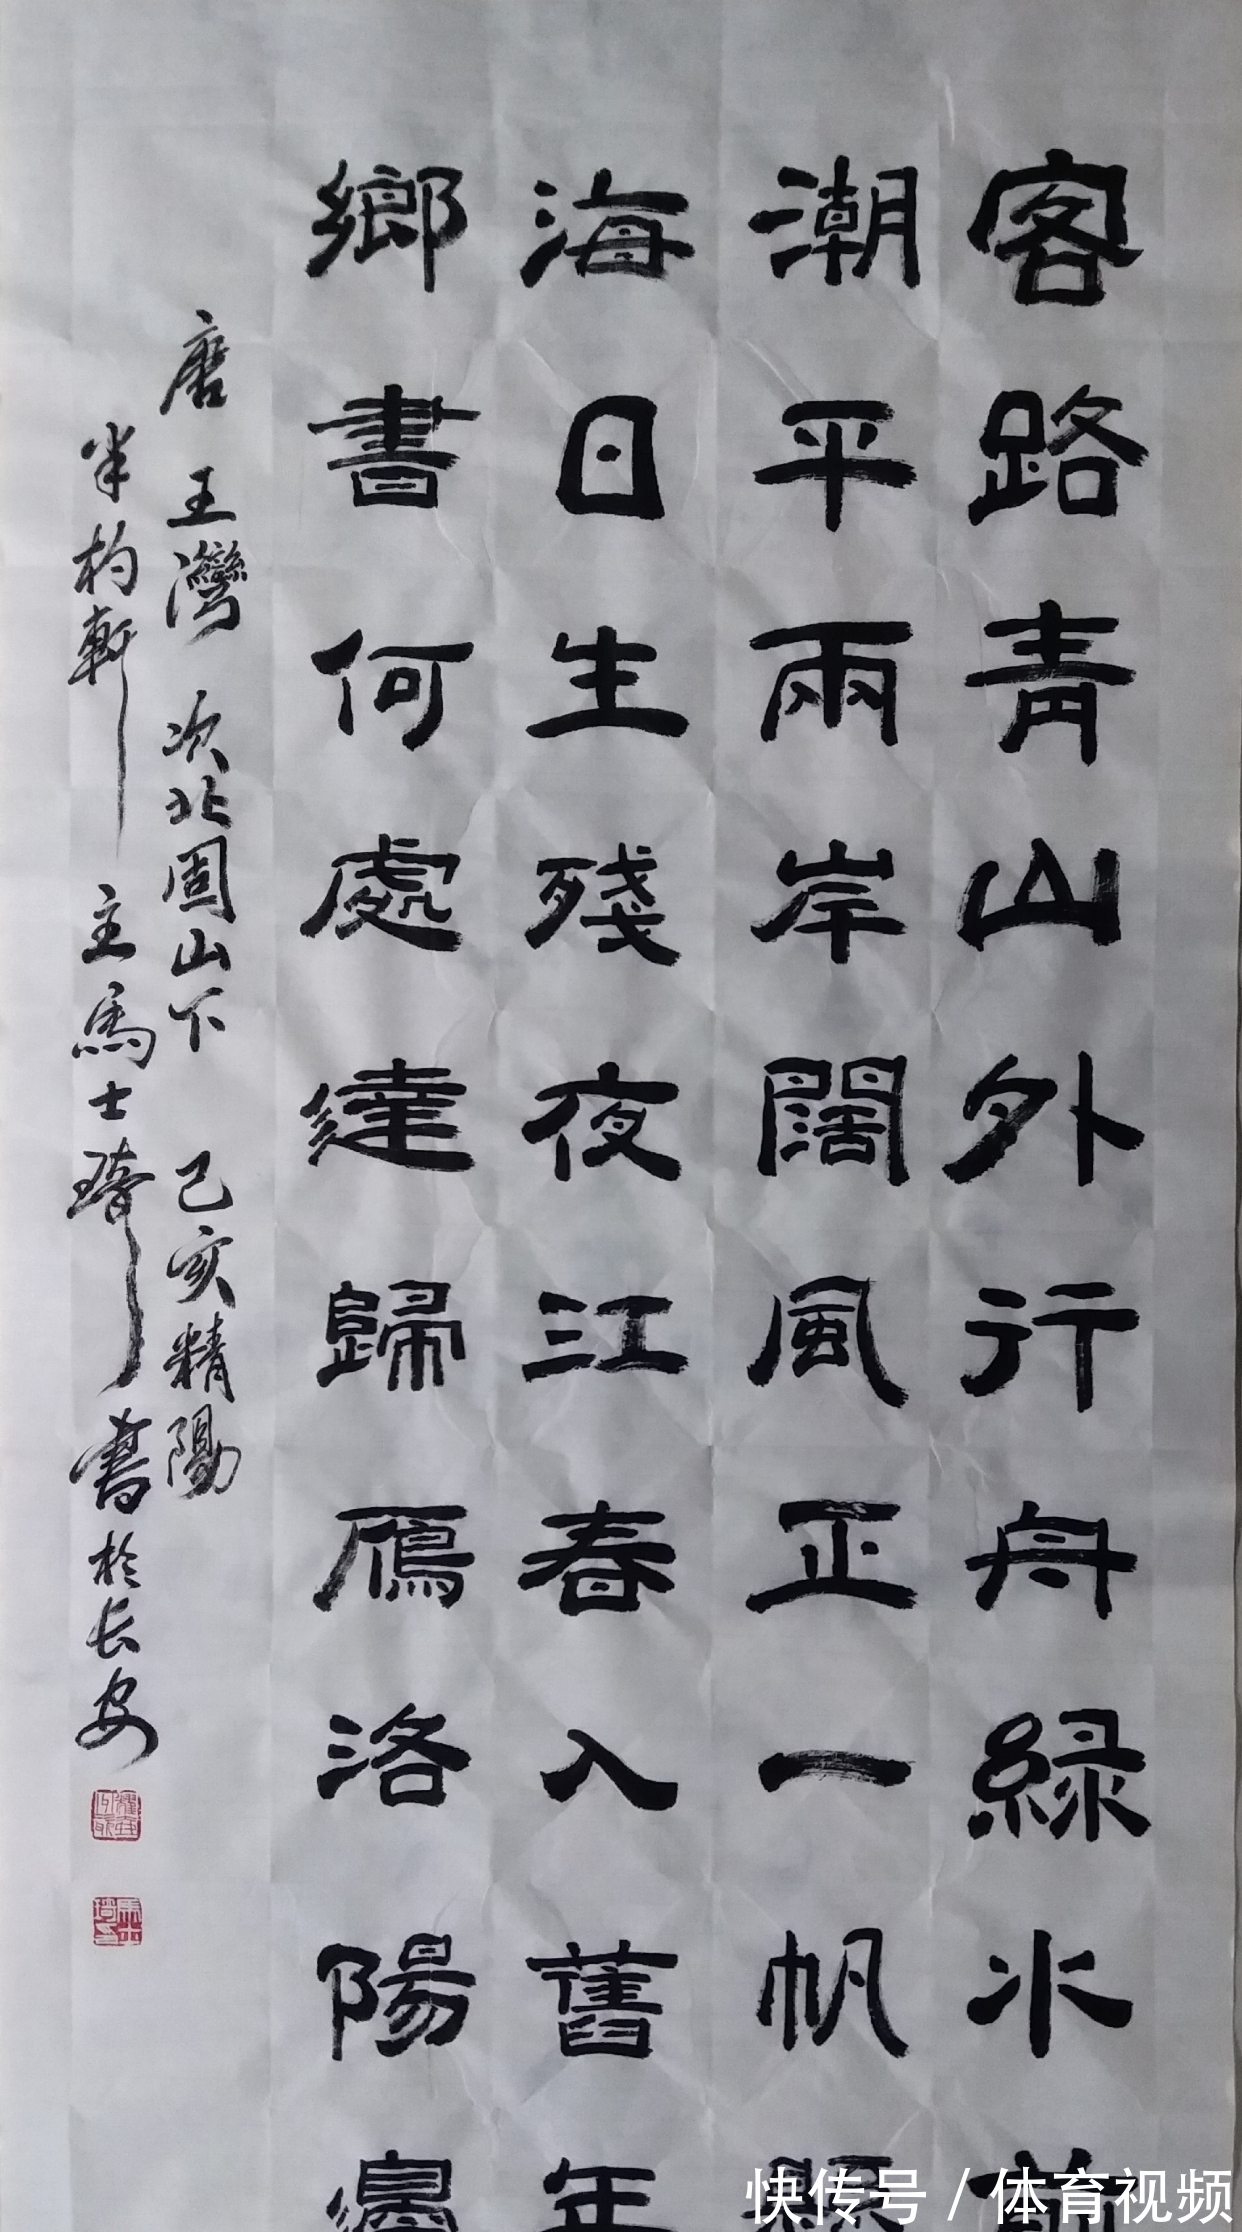 客路青山外行舟綠水前
潮平兩岸闊風正一帆懸
海日生殘夜江春入舊年
鄉書何處達歸雁洛陽邊
唐 王灣 次北固山下 己亥精陽
半杓軒主馬士琦書於长安
快传号/体育视频